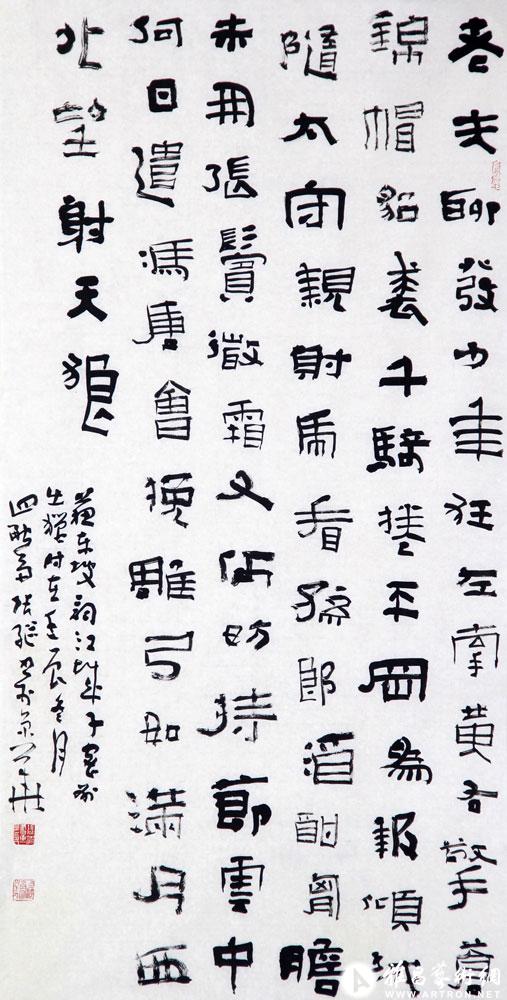 老夫聊發少年狂左牽黃右擎蒼
錦帽貂裘千騎捲平岡為報傾城
隨太守親射虎看孫郎酒酣胸膽
開張鬢微霜又何妨持節雲中
何日遣馮唐會挽雕弓如滿月西
北望射天狼
蘇東坡詞江城子密州
出獵時在壬辰冬月
張繼書於京華
雅昌藝術網
WWW.ARTRON.NET